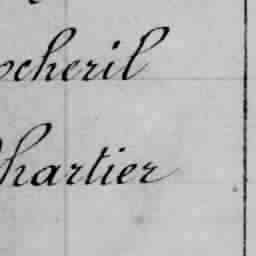 ocheril
Chartier